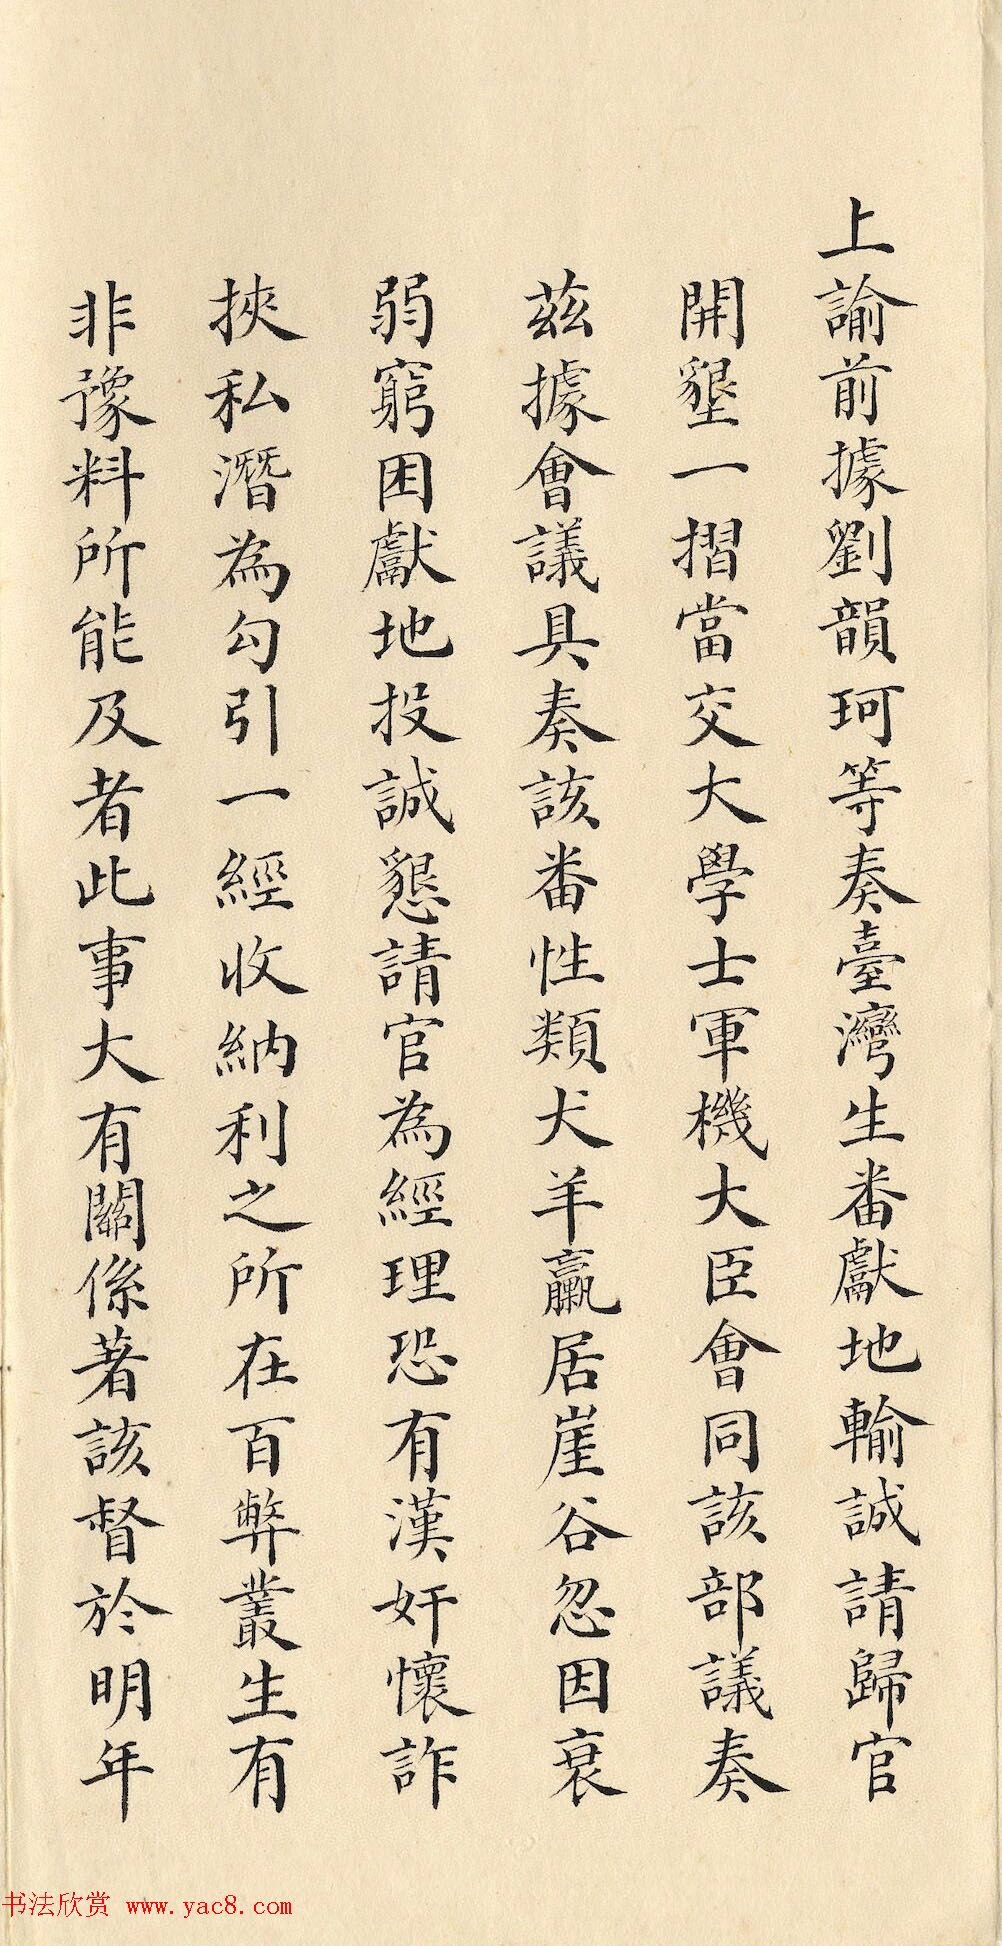 上諭前據劉韻珂等奏臺灣生番獻地輸誠請歸官
開墾一摺當交大學士軍機大臣會同該部議奏
茲據會議具奏該番性類犬羊羸居崖谷忽因衰
弱窮困獻地投誠懇請官為經理恐有漢奸懷詐
挾私潛為勾引一經收納利之所在百弊叢生有
非豫料所能及者此事大有關係著該督於明年
书法欣赏 www.yac8.com